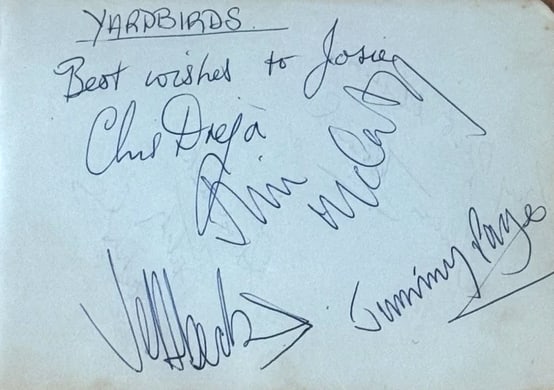 YARDBIRDS.
Best wishes to Josie
Chris Dreja
Jim McCarty
Jeff Beck
Jimmy Page